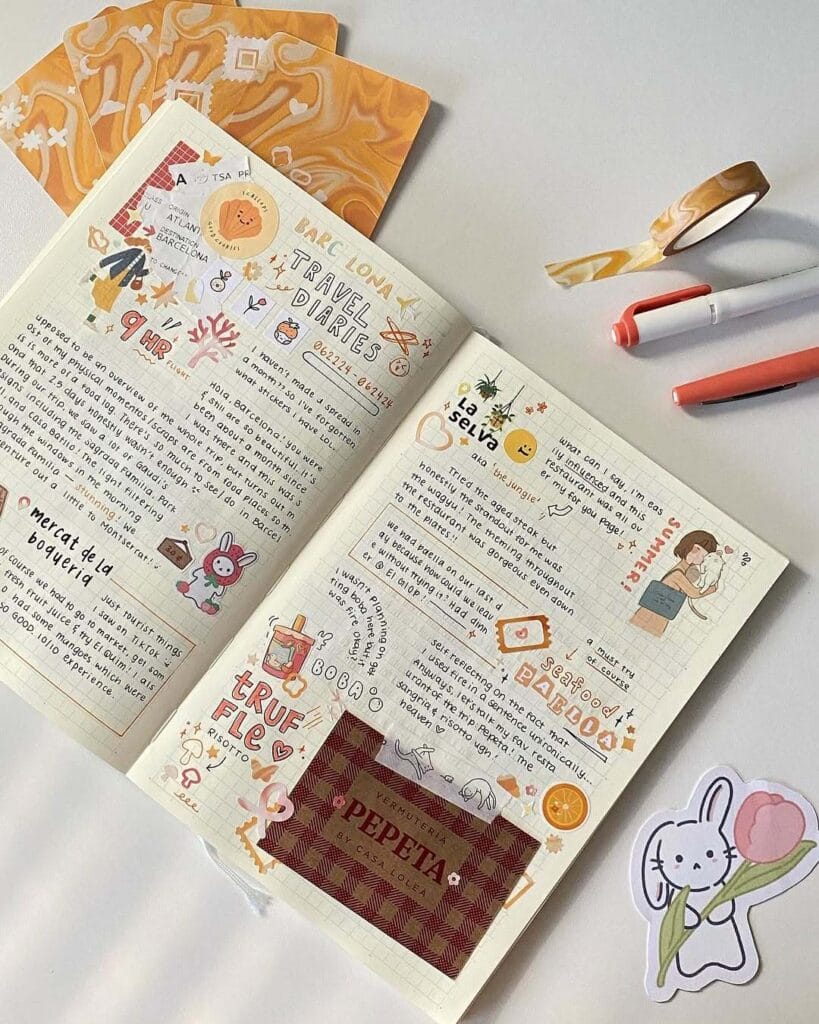 A TSA PR
CLASS ORIGIN
U ATLANT
DESTINATION
BARCELONA
TO CHANGE
SCALLOPS
GOOD COOKIES
BARCELONA
TRAVEL
DIARIES
062224 - 062424
9HR
FLIGHT
I haven't made a spread in
a month?? so I've forgotten
what stickers I have LOL..
Hola, Barcelona: you were
& still are so beautiful. It's
been about a month since
I was there and this was s
upposed to be an overview of the whole trip but turns out m
ost of my physical momentos/scraps are from food places so th
is is more of a food log. There's so much to see/do in Barcel
ona that 2.5 days honestly wasn't enough :(
During our trip, we saw a lot of Gaudi's
signs including the Sagrada Familia, Park
ll and Casa Batllo! The light filtering
ough the windows in the morning
agrada Familia ... stunning! We
enture out a little to Montserrat!
mercat de la
boqueria
Just tourist things
I saw on TikTok
of course we had to go to market, get som
fresh fruit juice & try El Quim! I als
o had some mangoes which were
SO GOOD. 10/10 experience.
La
Selva
aka 'the jungle'
What can I say, I'm eas
ily influenced and this
restaurant was all ov
er my for you page!
Tried the aged steak but
honestly the standout for me was
the wagyu! The theming throughout
the restaurant was gorgeous even down
to the plates!!
SUMMER!
we had paella on our last d
ay because how could we leav
e without trying it? Had dinn
er @ El Glop!
a must try
of course
seafood
PAELLA
I wasn't planning on get
ring boba here but it
was fire okay?
BOBA
TRUF
FLE
RISOTTO
self reflecting on the fact that
I used fire in a sentence unironically...
Anyways, let's talk my fav resta
urant of the trip: Pepeta! The
sangria & risotto ugh!
heaven
VERMUTERIA
PEPETA
BY CASA LOLEA